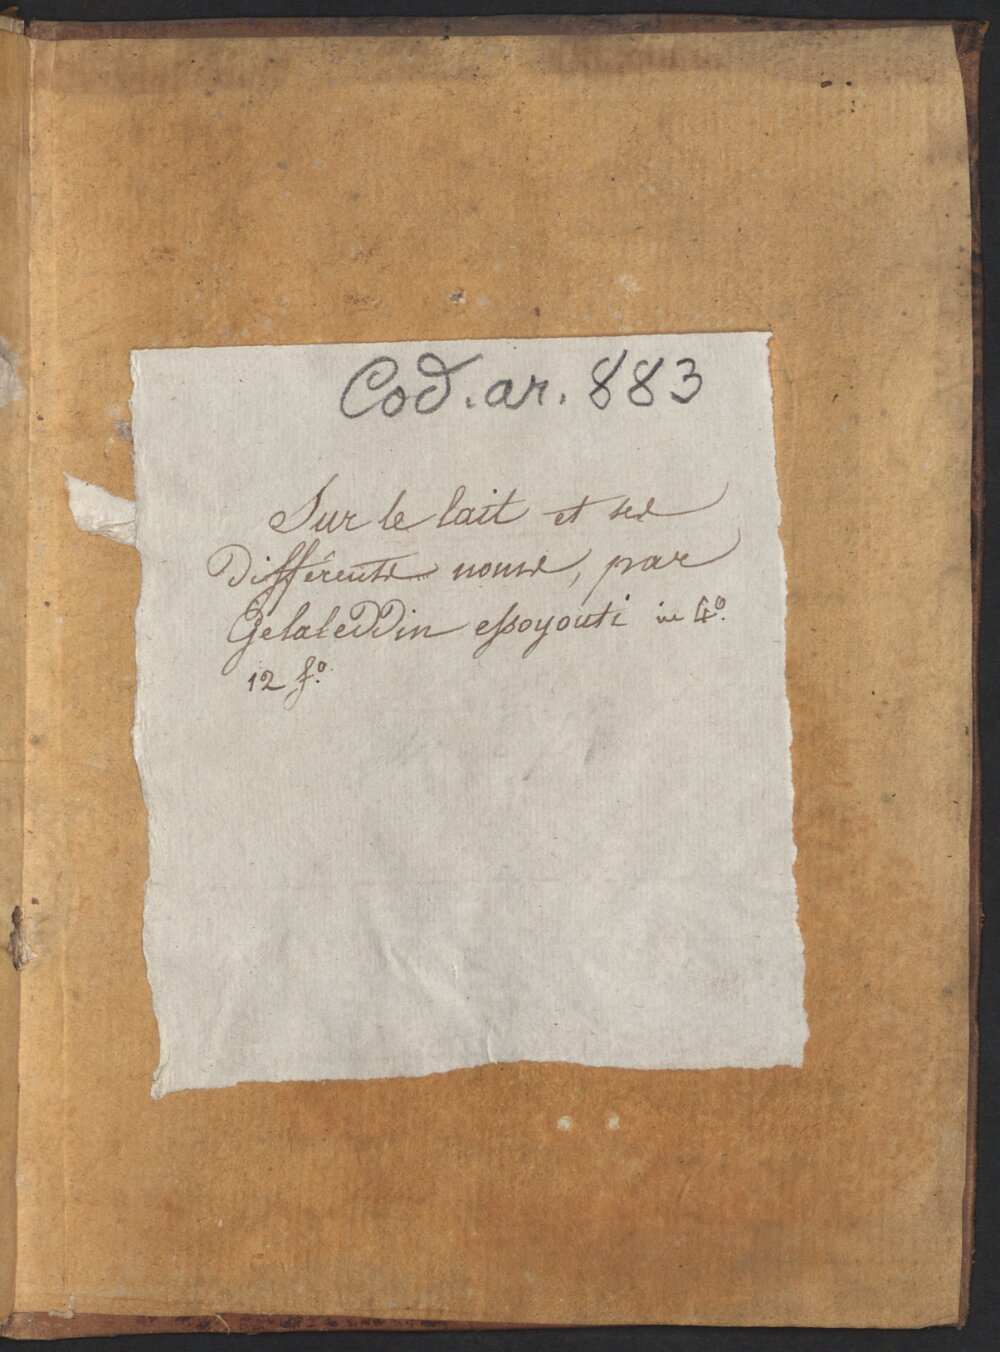 Cod. ar. 883
Sur le lait et ses
différents noms, par
Gelaleddin essoyouti in 4º.
12 fº.